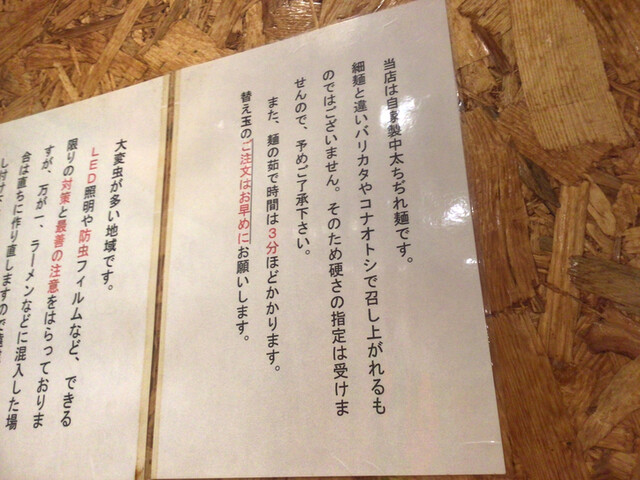 当店は自家製中太ちぢれ麺です。
細麺と違いバリカタやコナオトシで召し上がれるも
のではございません。そのため硬さの指定は受けま
せんので、予めご了承下さい。
また、麺の茹で時間は３分ほどかかります。
替え玉のご注文はお早めにお願いします。
大変虫が多い地域です。
ＬＥＤ照明や防虫フィルムなど、できる
限りの対策と最善の注意をはらっておりま
すが、万が一、ラーメンなどに混入した場
合は直ちに作り直しますので
し付け